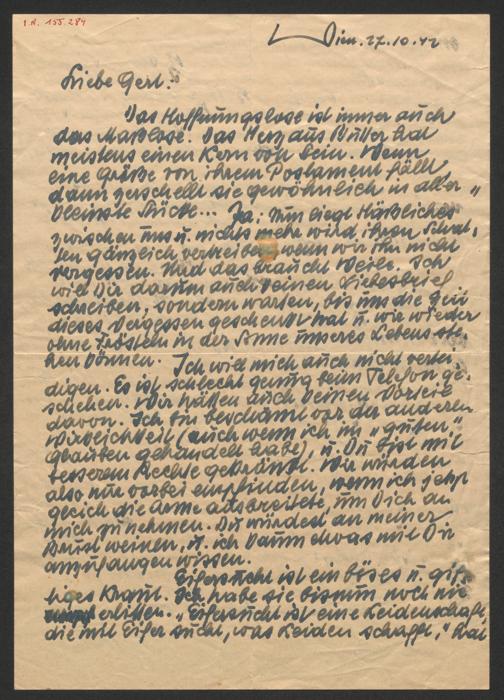 I.N. 155.284
Wien. 27.10.42
Liebe Gerl!
Das Hoffnungslose ist immer auch
das Maßlose. Das Herz aus Butter hat
meistens einen Kern von Stein. Wenn
eine Größe von ihrem Postament fällt
dann zerschellt sie gewöhnlich in aller-
kleinste Stücke... Ja: Nun liegt Häßliches
zwischen uns u. nichts mehr wird ihren Schat-
ten gänzlich vertreiben wenn wir ihn nicht
vergessen. Und das braucht Weile. Ich
will Dir darum auch keinen Liebesbrief
schreiben, sondern warten, bis uns die Zeit
dieses Vergessen geschenkt hat u. wir wieder
ohne Frösteln in der Sonne unseres Lebens ste-
hen können. Ich will mich auch nicht vertei-
digen. Es ist schlecht genug beim Telefon ge-
schehen. Wir hätten auch keinen Vorteil
davon. Ich bin beschämt vor der anderen
Wirklichkeit (auch wenn ich im "guten"
glauben gehandelt habe), u. Du bist mit
besserem Rechte gekränkt. Wir würden
also nur vorbei empfinden, wenn ich jetzt
gleich die Arme ausbreitete, um Dich an
mich zu nehmen. Du würdest an meiner
Brust weinen, u. ich kaum etwas mit Dir
anzufangen wissen.
Eifersucht ist ein böses u. gif-
tiges Kraut. Ich habe sie bis nun noch nie
erlitten. "Eifersucht ist eine Leidenschaft,
die mit Eifer sucht, was Leiden schafft," hat